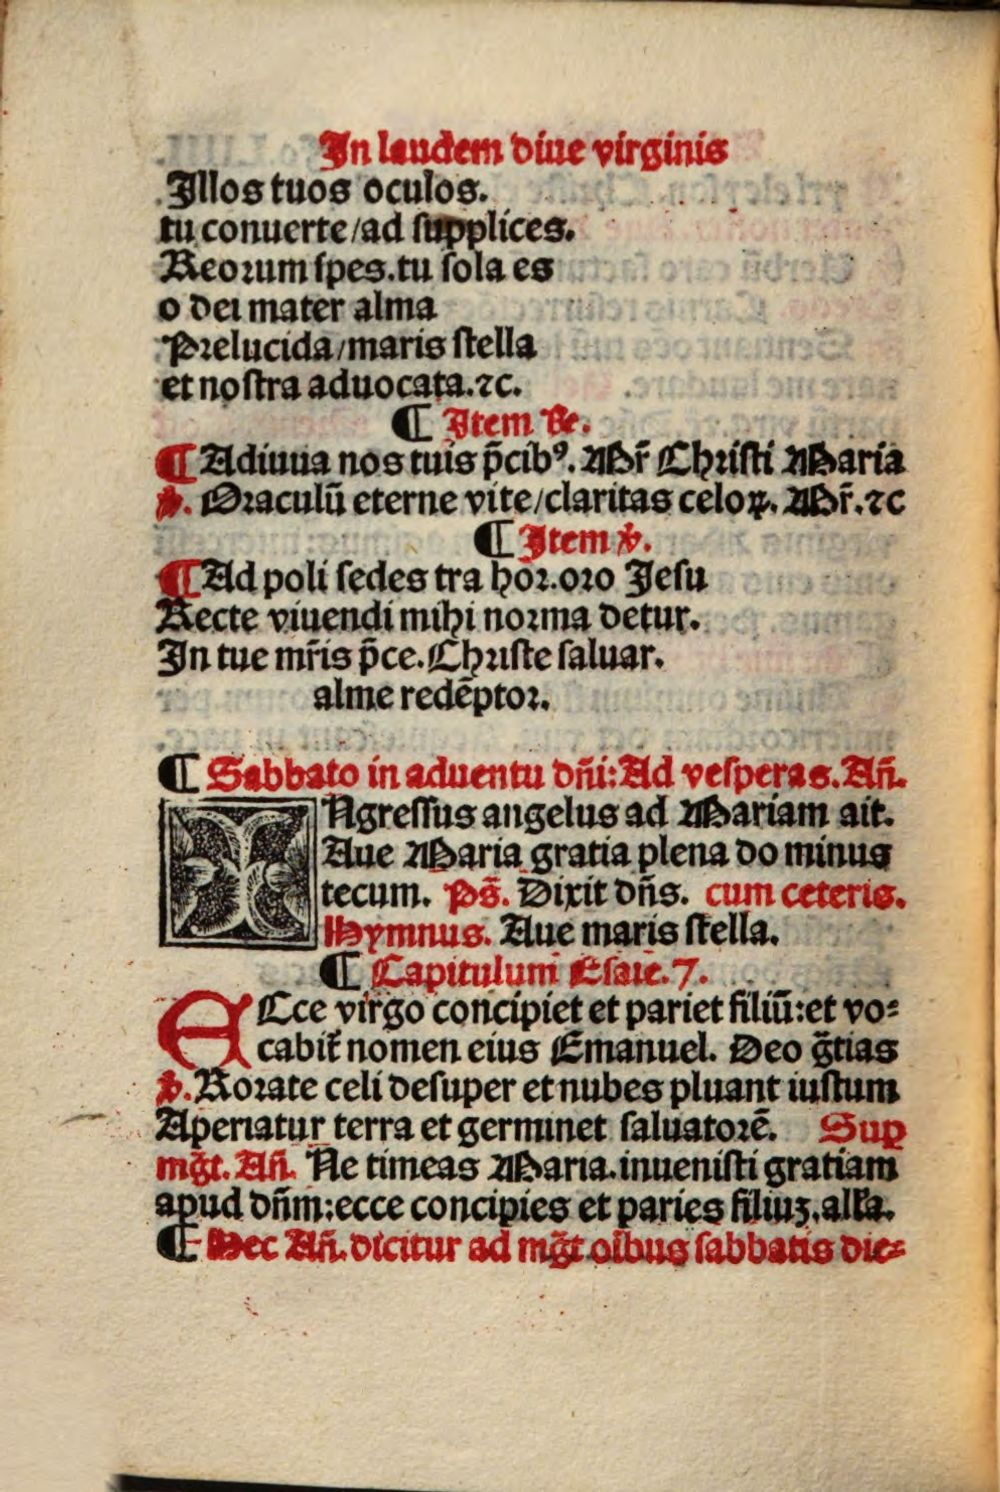 In laudem diue virginis
Illos tuos oculos.
tu conuerte/ad supplices.
Reorum spes.tu sola es
o dei mater alma
Prelucida/maris stella
et nostra aduocata.⁊c.
¶ Item R̃.
¶ Adiuua nos tuis p̃cibꝰ. Mr̃ Christi Maria
℣. Oraculũ eterne vite/claritas celoꝝ. Mr̃.⁊c
¶ Item ℣.
¶ Ad poli sedes tra hor.oro Jesu
Recte viuendi mihi norma detur.
In tue mr̃is p̃ce.Christe saluar.
alme redẽptor.
¶ Sabbato in aduentu dñi:Ad vesperas.Añ.
INgressus angelus ad Mariam ait.
Aue Maria gratia plena do minus
tecum. Ps̃. Dixit dñs. cum ceteris.
Hymnus. Aue maris stella.
¶ Capitulum Esaie.7.
ECce virgo concipiet et pariet filiũ:et vo⸗
cabit̃ nomen eius Emanuel. Deo g̃tias
℣. Rorate celi desuper et nubes pluant iustum
Aperiatur terra et germinet saluatorẽ. Suꝑ
mg̃t. Añ. Ne timeas Maria.inuenisti gratiam
apud dñm:ecce concipies et paries filiuꝫ.all'a.
¶ Hec Añ.dicitur ad mg̃t.oĩbus sabbatis die⸗